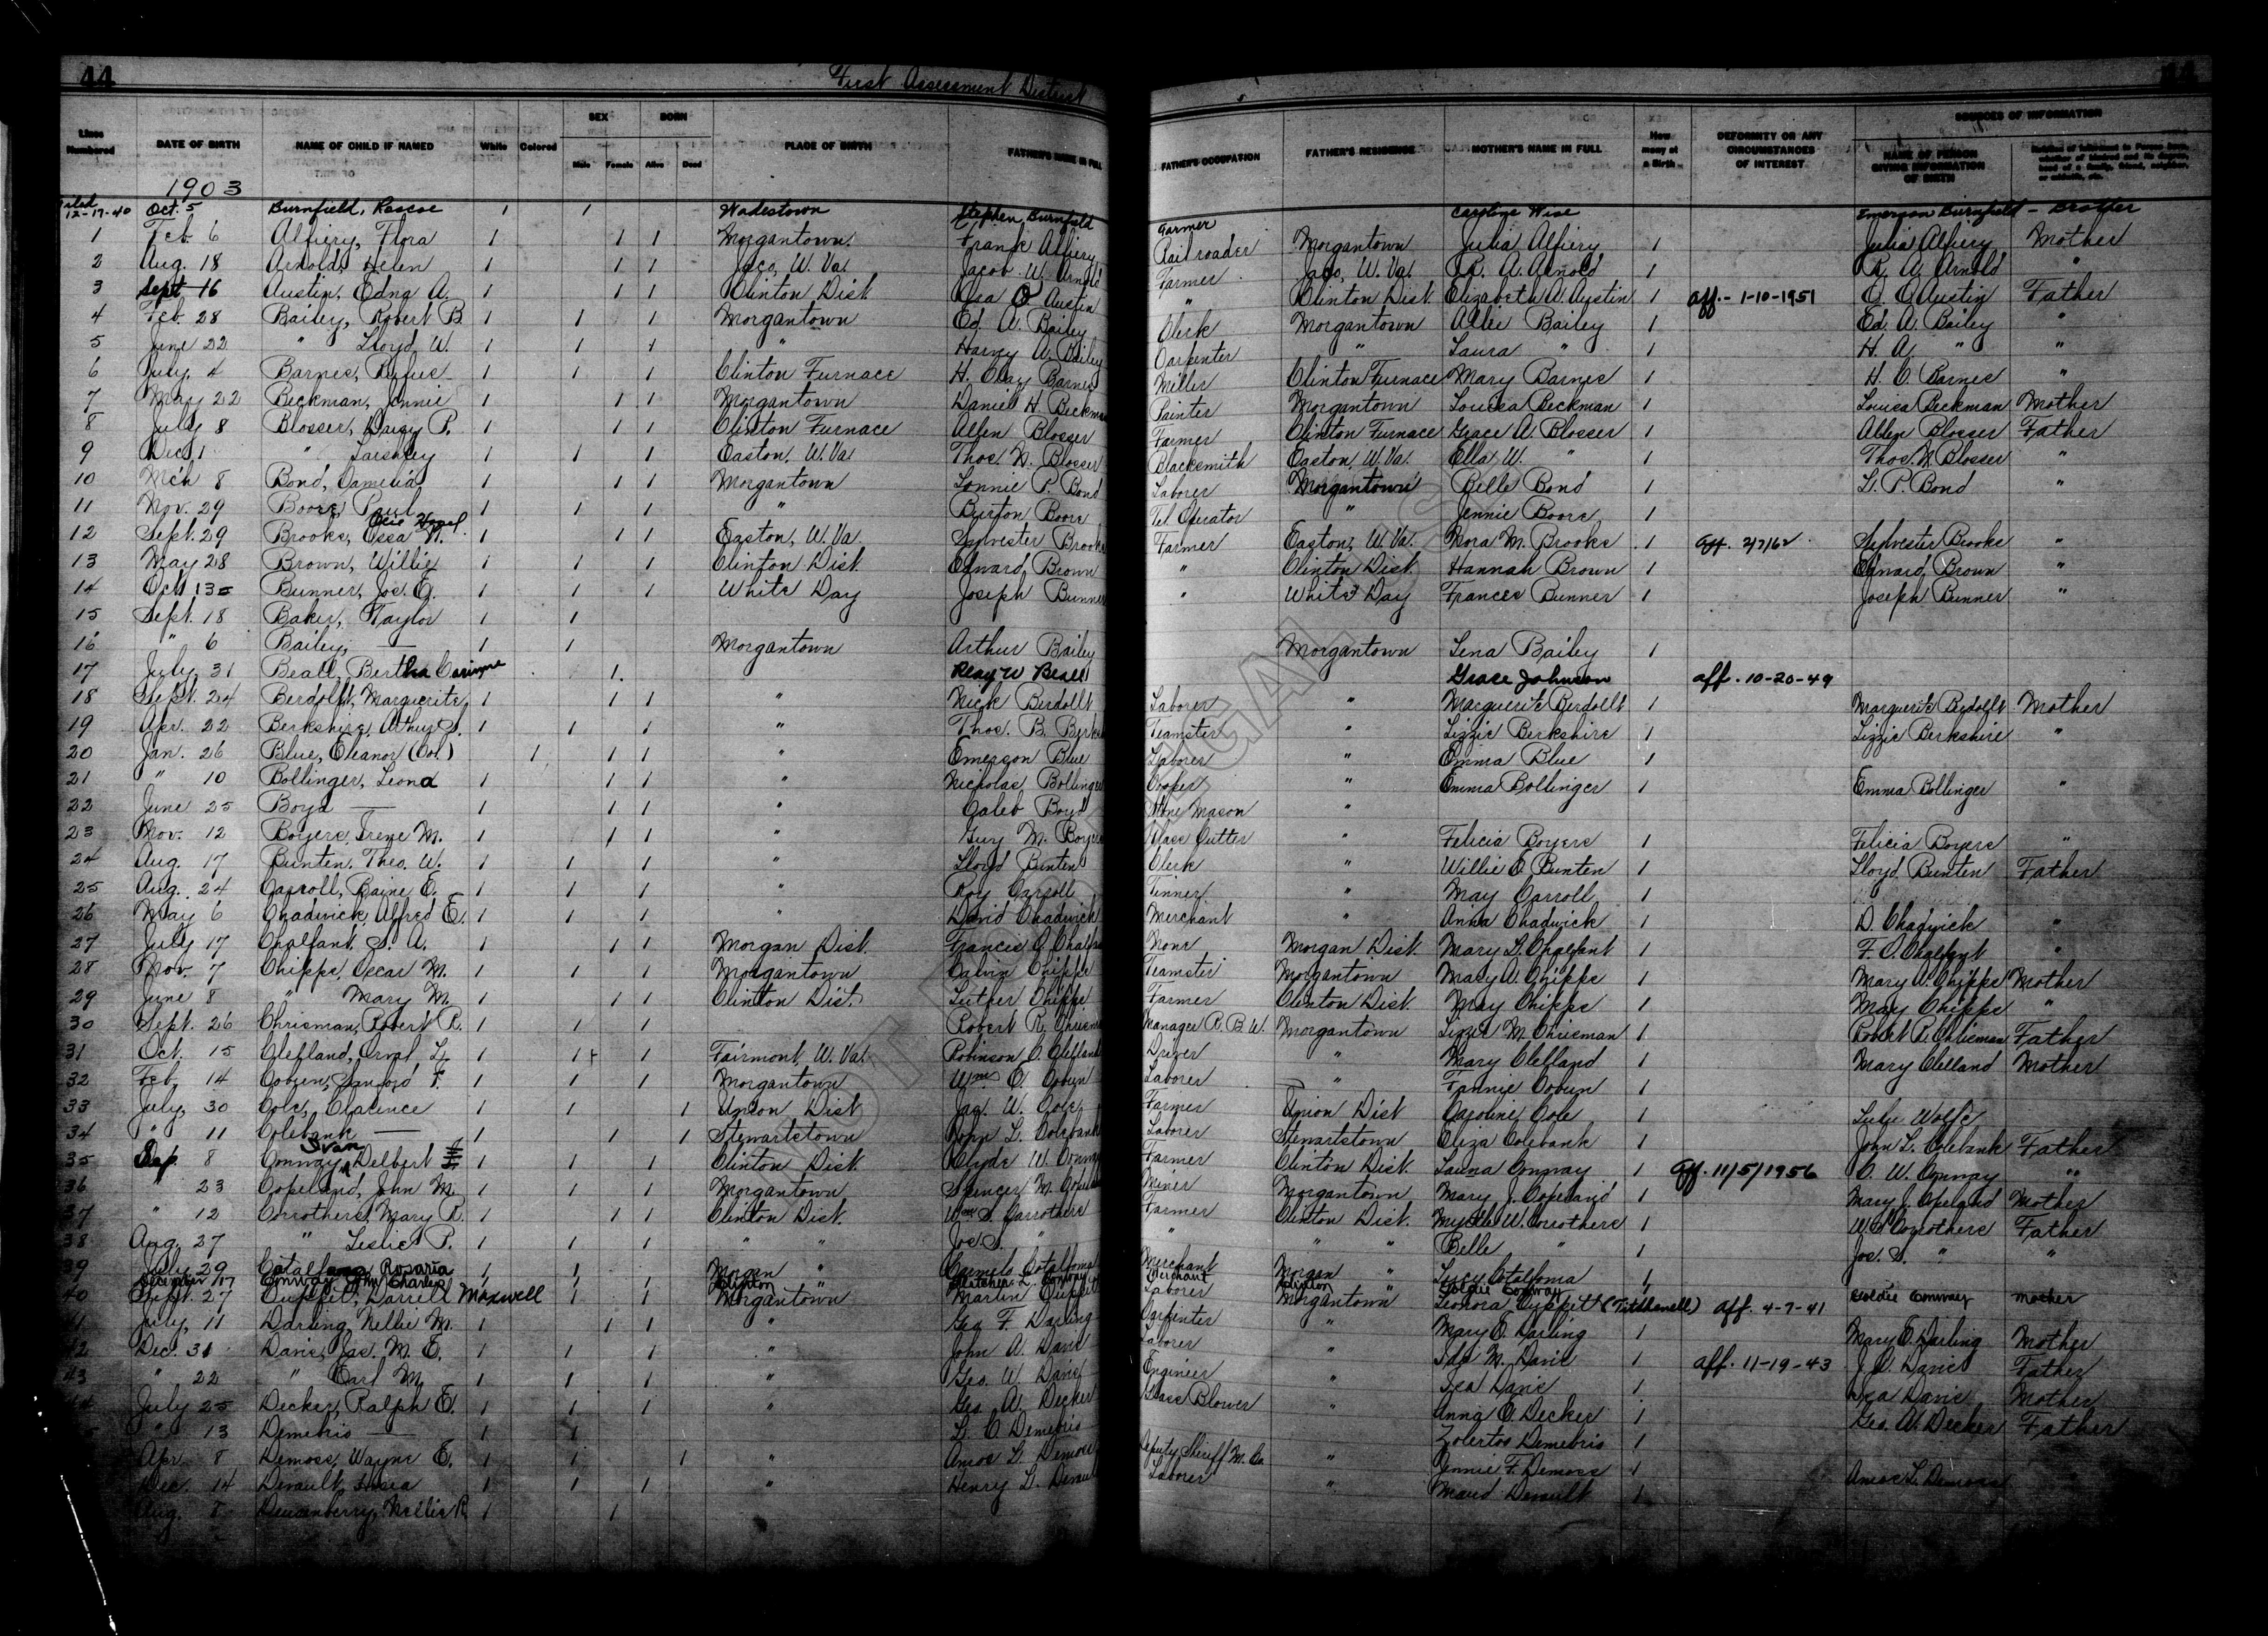 44
First Assessment District
44
Lines Numbered DATE OF BIRTH NAME OF CHILD IF NAMED White Colored SEX Male Female BORN Alive Dead PLACE OF BIRTH FATHER'S NAME IN FULL FATHER'S OCCUPATION FATHER'S RESIDENCE MOTHER'S NAME IN FULL How many at a Birth DEFORMITY OR ANY CIRCUMSTANCES OF INTEREST SOURCES OF INFORMATION NAME OF PERSON GIVING INFORMATION OF BIRTH
1903
12-17-40 Oct. 5 Burnfield, Roscoe 1 1 Wadestown Stephen Burnfield Farmer Caroline Wise Emerson Burnfield - Brother
1 Feb. 6 Alfiery, Flora 1 1 1 Morgantown Frank Alfiery Railroader Morgantown Julia Alfiery 1 Julia Alfiery Mother
2 Aug. 18 Arnold, Helen 1 1 1 Jaco, W. Va. Jacob W. Arnold Farmer Jaco, W. Va. R. A. Arnold 1 R. A. Arnold "
3 Sept 16 Austin, Edna A. 1 1 1 Clinton Dist Asa O Austin " Clinton Dist Elizabeth A. Austin 1 aff. - 1-10-1951 Austin Father
4 Feb. 28 Bailey, Robert B. 1 1 1 Morgantown Ed. A. Bailey Clerk Morgantown Allie Bailey 1 Ed. A. Bailey "
5 June 22 " Lloyd W. 1 1 1 " Harvey A. Bailey Carpenter " Laura " 1 H. A. " "
6 July 4 Barnes, Rufus 1 1 1 Clinton Furnace H. Clay Barnes Miller Clinton Furnace Mary Barnes 1 H. C. Barnes "
7 May 22 Beckman, Jennie 1 1 1 Morgantown Daniel H. Beckman Painter Morgantown Louisa Beckman 1 Louisa Beckman Mother
8 July 8 Blosser, Daisy P. 1 1 1 Clinton Furnace Allen Blosser Farmer Clinton Furnace Grace A. Blosser 1 Allen Blosser Father
9 Dec. 1 " 1 1 1 Easton, W. Va. Thos. W. Blosser Blacksmith Easton, W. Va. Ella W. " 1 Thos. W. Blosser "
10 Mch 8 Bond, Camelia 1 1 1 Morgantown Lonnie P. Bond Laborer Morgantown Belle Bond 1 L. P. Bond "
11 Nov. 29 Boore, Paul 1 1 1 " Burton Boore Tel Operator " Jennie Boore 1
12 Sept. 29 Brooks, Ossa H. Ocie Hazel 1 1 1 Easton, W. Va. Sylvester Brooks Farmer Easton, W. Va. Nora M. Brooks 1 aff. 2/7/62 Sylvester Brooks "
13 May 28 Brown, Willie 1 1 1 Clinton Dist. Edward Brown " Clinton Dist. Hannah Brown 1 Edward Brown "
14 Oct 13 Bunner, Jos. E. 1 1 1 White Day Joseph Bunner " White Day Frances Bunner 1 Joseph Bunner "
15 Sept. 18 Baker, Taylor 1 1
16 " 6 Bailey, — 1 1 Morgantown Arthur Bailey Morgantown Lena Bailey 1
17 July 31 Beall, Bertha Corinne 1 Reay W Beall Grace Johnson aff. 10-20-49
18 Sept. 24 Berdollt, Marguerite 1 1 1 " Nick Berdollt Laborer " Marguerite Berdollt 1 Marguerite Berdollt Mother
19 Apr. 22 Berkshire, Arthur S. 1 1 1 " Thos. B. Berks Teamster " Lizzie Berkshire 1 Lizzie Berkshire "
20 Jan. 26 Blue, Eleanor (Col.) 1 1 1 " Emerson Blue Laborer " Emma Blue 1
21 " 10 Bollinger, Leona 1 1 1 " Nicholas Bollinger Cooper " Emma Bollinger 1 Emma Bollinger "
22 June 25 Boyd — 1 1 1 " Caleb Boyd Stone Mason "
23 Nov. 12 Boyers, Irene M. 1 1 1 " Guy M. Boyers Glass Cutter " Felicia Boyers 1 Felicia Boyers "
24 Aug. 17 Bunten, Theo. W. 1 1 1 " Lloyd Bunten Clerk " Willie E Bunten 1 Lloyd Bunten Father
25 Aug. 24 Carroll, Raine E. 1 1 1 " Roy Carroll Tinner " May Carroll 1
26 May 6 Chadwick, Alfred E. 1 1 1 " David Chadwick Merchant " Anna Chadwick 1 D. Chadwick "
27 July 17 Chalfant, S. A. 1 1 1 Morgan Dist. Francis C. Chalfant None Morgan Dist. Mary L. Chalfant 1 F. C. Chalfant "
28 Nov. 7 Chipps, Oscar M. 1 1 1 Morgantown Calvin Chipps Teamster Morgantown Mary A. Chipps 1 Mary A. Chipps Mother
29 June 8 " Mary M. 1 1 1 Clinton Dist. Luther Chipps Farmer Clinton Dist. May Chipps 1 May Chipps "
30 Sept. 26 Chrisman, Robert R. 1 1 1 Robert R. Chrisman Manager R. B. W. Morgantown Lizzie M. Chrisman 1 Robert R. Chrisman Father
31 Oct. 15 Clelland, Orval L. 1 1 1 Fairmont, W. Va. Robinson C. Clelland Driver " Mary Clelland 1 Mary Clelland Mother
32 Feb. 14 Coburn, Sanford F. 1 1 1 Morgantown Wm. E. Coburn Laborer " Fannie Coburn 1
33 July 30 Cole, Clarence 1 1 1 Union Dist Jas. W. Cole Farmer Union Dist Caroline Cole 1 Lulu Wolfe
34 " 11 Colebank — 1 1 1 Stewartstown John L. Colebank Laborer Stewartstown Eliza Colebank 1 John L. Colebank Father
35 Sep. 8 Conway, Ivan Delbert 1 1 1 Clinton Dist. Clyde W. Conway Farmer Clinton Dist. Launa Conway 1 Aff. 11/5/1956 C. W. Conway "
36 " 23 Copeland, John M. 1 1 1 Morgantown Spencer M. Copeland Miner Morgantown Mary J. Copeland 1 Mary J. Copeland Mother
37 " 12 Corrothers, Mary R. 1 1 1 Clinton Dist. Wm. S. Corrothers Farmer Clinton Dist. Myrtle W. Corrothers 1 W. S. Corrothers Father
38 Aug. 27 " Leslie P. 1 1 1 " " Jos. S. " " " " Belle " 1 Jos. S. " "
39 July 29 Rosaria 1 1 Morgan " Carmelo Cotalfoma Merchant Morgan " Lucy Cotalfoma 1
December 17 Conway John Charles 1 1 1 Clinton Fletcher L. Conway Merchant Clinton " Goldie Conway 1 Goldie Conway Mother
40 Sept. 27 Cuppett, Darrell Maxwell 1 1 Morgantown Martin Cuppett Laborer Morgantown Leonora Cuppett (Titchenell) aff. 4-7-41
41 July 11 Darling, Nellie M. 1 1 1 " Geo F. Darling Carpenter " Mary E. Darling 1 Mary E. Darling Mother
42 Dec. 31 Davis, Jas. M. E. 1 1 1 " John A. Davis Laborer " Ida M. Davis 1 aff. 11-19-43 J. A. Davis Father
43 " 22 " Earl M. 1 1 1 " Geo. W. Davis Engineer " Davis 1 Davis Mother
44 July 25 Decker, Ralph E. 1 1 1 " Geo. A. Decker Glass Blower " Anna E. Decker 1 Geo. A. Decker Father
" 13 Demebris — 1 1 Demebris Demebris 1
Apr. 8 Demoss, Wayne E. 1 1 1 " Amos L. Demoss Deputy Sheriff M. Co. " Jennie F. Demoss 1 Amos L. Demoss
Dec. 14 Derault, 1 1 1 " Henry L. Derault Laborer " Maud Derault 1
Aug. 8 Dusenberry, Nellie R. 1 1